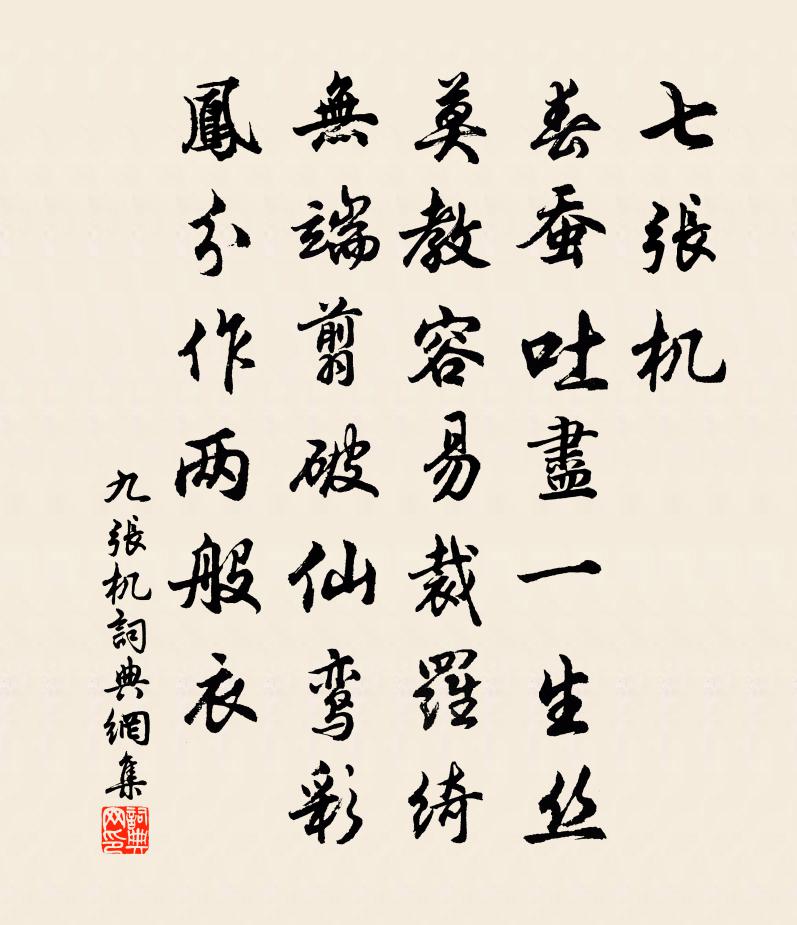 七張机
春蚕吐盡一生丝
莫教容易裁羅綺
無端翦破仙鸾彩
鳳分作两般衣
九張机詞典網集
詞典网印